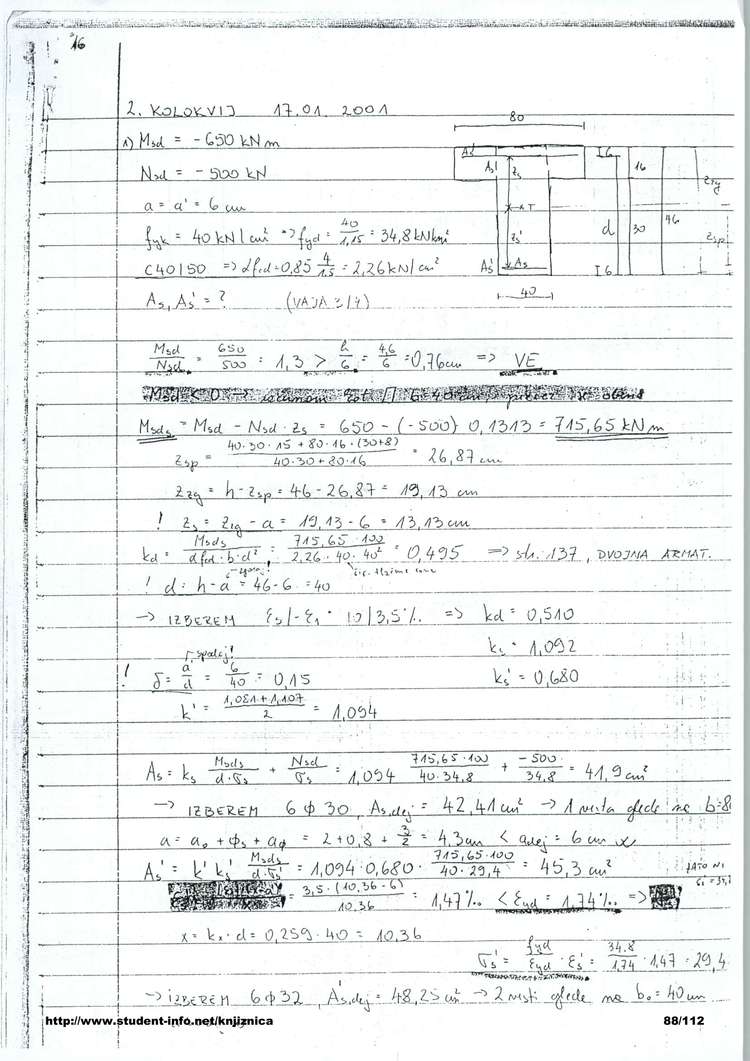 16
2. KOLOKVIJ 17.01.2001
1) Msd = -650 kNm
Nsd = -500 kN
a = a' = 6 cm
fyk = 40 kN/cm² => fyd = 40/1,15 = 34,8 kN/cm²
C40/50 => αfcd = 0,85 4/1,5 = 2,26 kN/cm²
As, As' = ? (VAJA 3/4)
80
As'
zs
I6
16
zzg
x T
d
30
46
zs'
zsp
As'
As
I6
40
Msd/Nsd = 650/500 = 1,3 > h/6 = 4,6/6 = 0,76 cm => VE
Msd < 0 =>
Msds = Msd - Nsd · zs = 650 - (-500) 0,1313 = 715,65 kNm
zsp = 40·30·15 + 80·16·(30+8) / 40·30 + 80·16 = 26,87 cm
zzg = h - zsp = 46 - 26,87 = 19,13 cm
! zs = zzg - a = 19,13 - 6 = 13,13 cm
kd = Msds/αfcd·b·d² = 715,65·100/2,26·40·40² = 0,495 => str. 137, DVOJNA ARMAT.
! d = h - a = 46 - 6 = 40
-> IZBEREM εs/-ε1 = 10/3,5‰ => kd = 0,510
ks = 1,092
spodaj!
! δ = a/d = 6/40 = 0,15
ks' = 0,680
k' = 1,081+1,107/2 = 1,094
As = ks Msds/d·σs + Nsd/σs = 1,094 715,65·100/40·34,8 + -500/34,8 = 41,9 cm²
-> IZBEREM 6 φ 30, As,dej = 42,41 cm² -> 1 vrsta glede na b=8
a = a0 + φs + aφ = 2 + 0,8 + 3/2 = 4,3 cm < adej = 6 cm
As' = k' ks' Msds/d·σs' = 1,094·0,680 · 715,65·100/40·29,4 = 45,3 cm²
= 3,5·(10,36-6)/10,36 = 1,47‰ < εyd = 1,74‰ =>
x = kx·d = 0,259·40 = 10,36
σs' = fyd/εyd · εs' = 34,8/1,74 · 1,47 = 29,4
-> IZBEREM 6 φ 32, As',dej = 48,25 cm² -> 2 vrsti glede na b0 = 40 cm
http://www.student-info.net/knjiznica
88/112